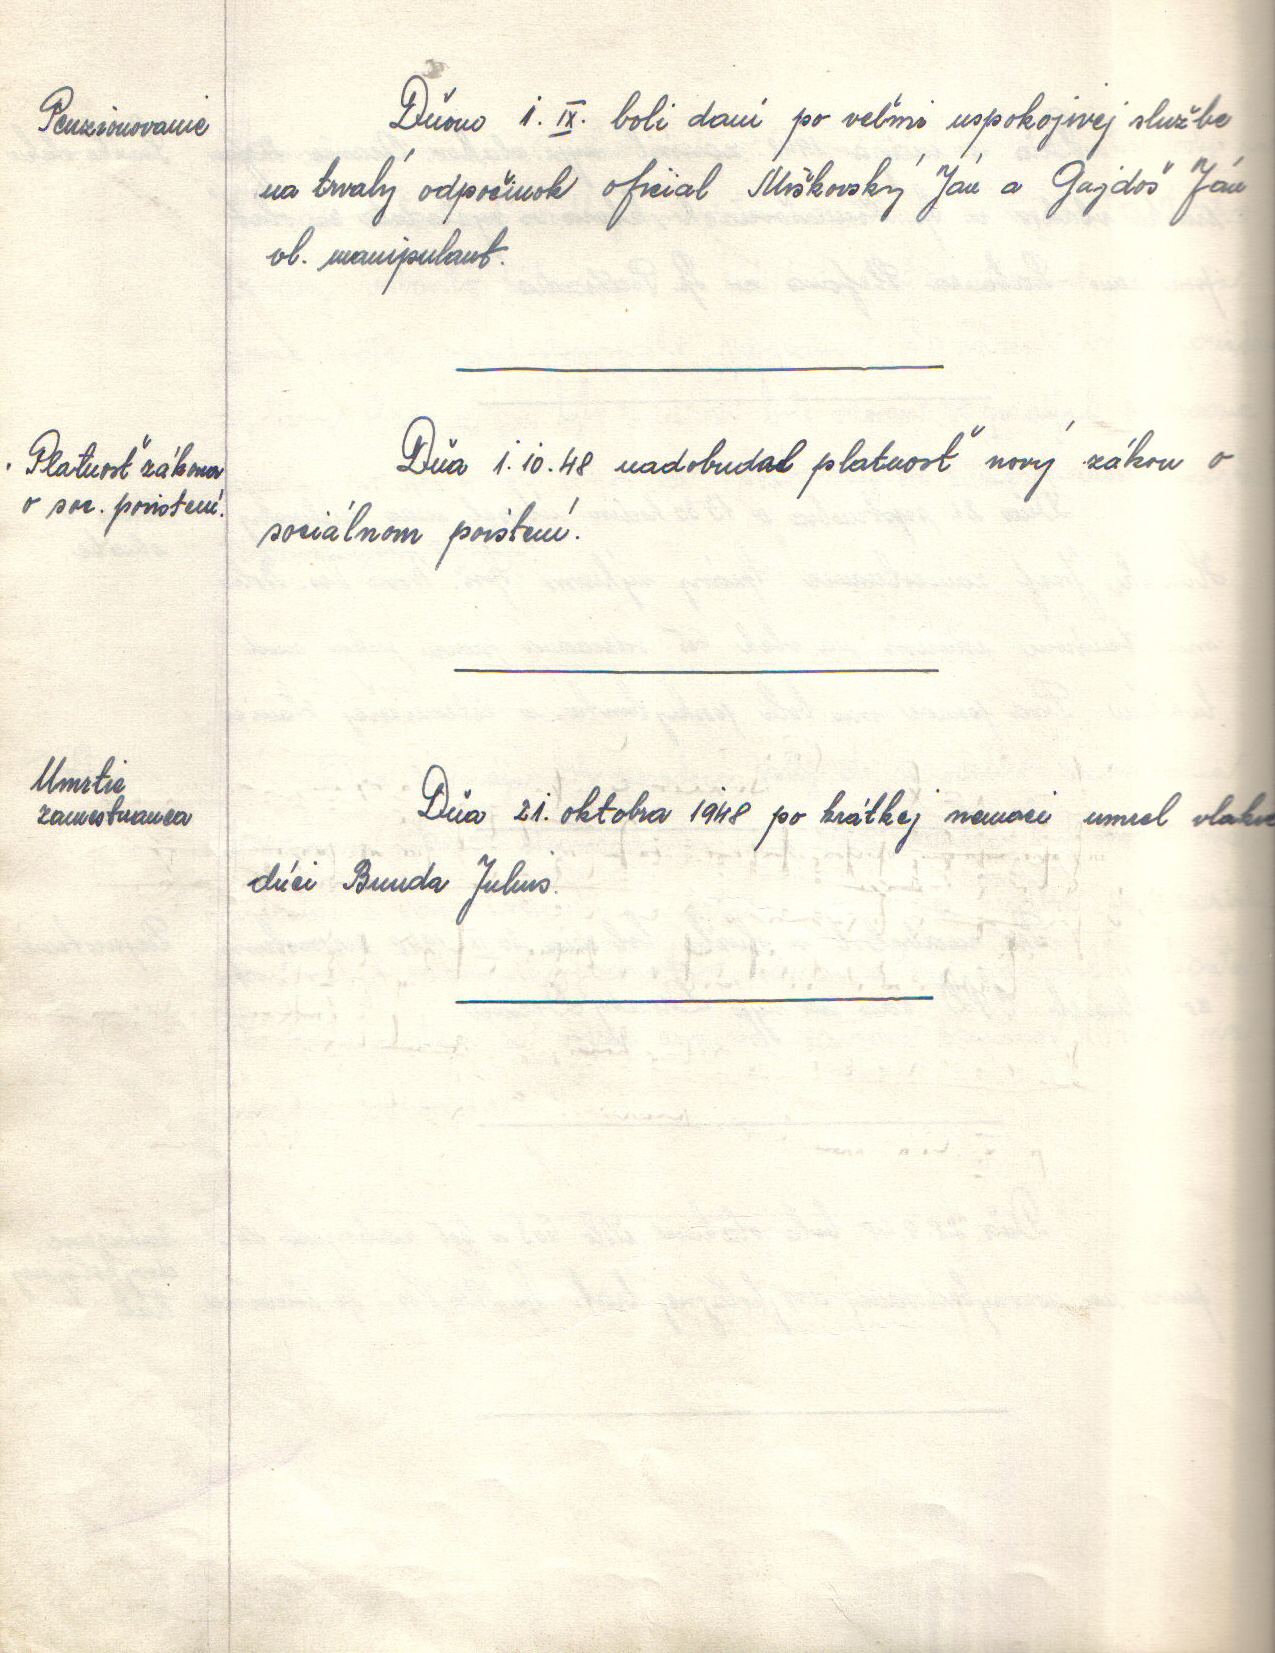 Penzionovanie
Dňono 1. IX. boli daní po veľmi uspokojivej službe
na trvalý odpočinok oficial Miškovský Ján a Gajdoš Ján
ob. manipulant.
Platnosť zákona
o soc. poistení.
Dňa 1.10.48 nadobudol platnosť nový zákon o
sociálnom poistení.
Umrtie
zamestnanca
Dňa 21. oktobra 1948 po krátkej nemoci umrel vlakve
dúci Bunda Julius.